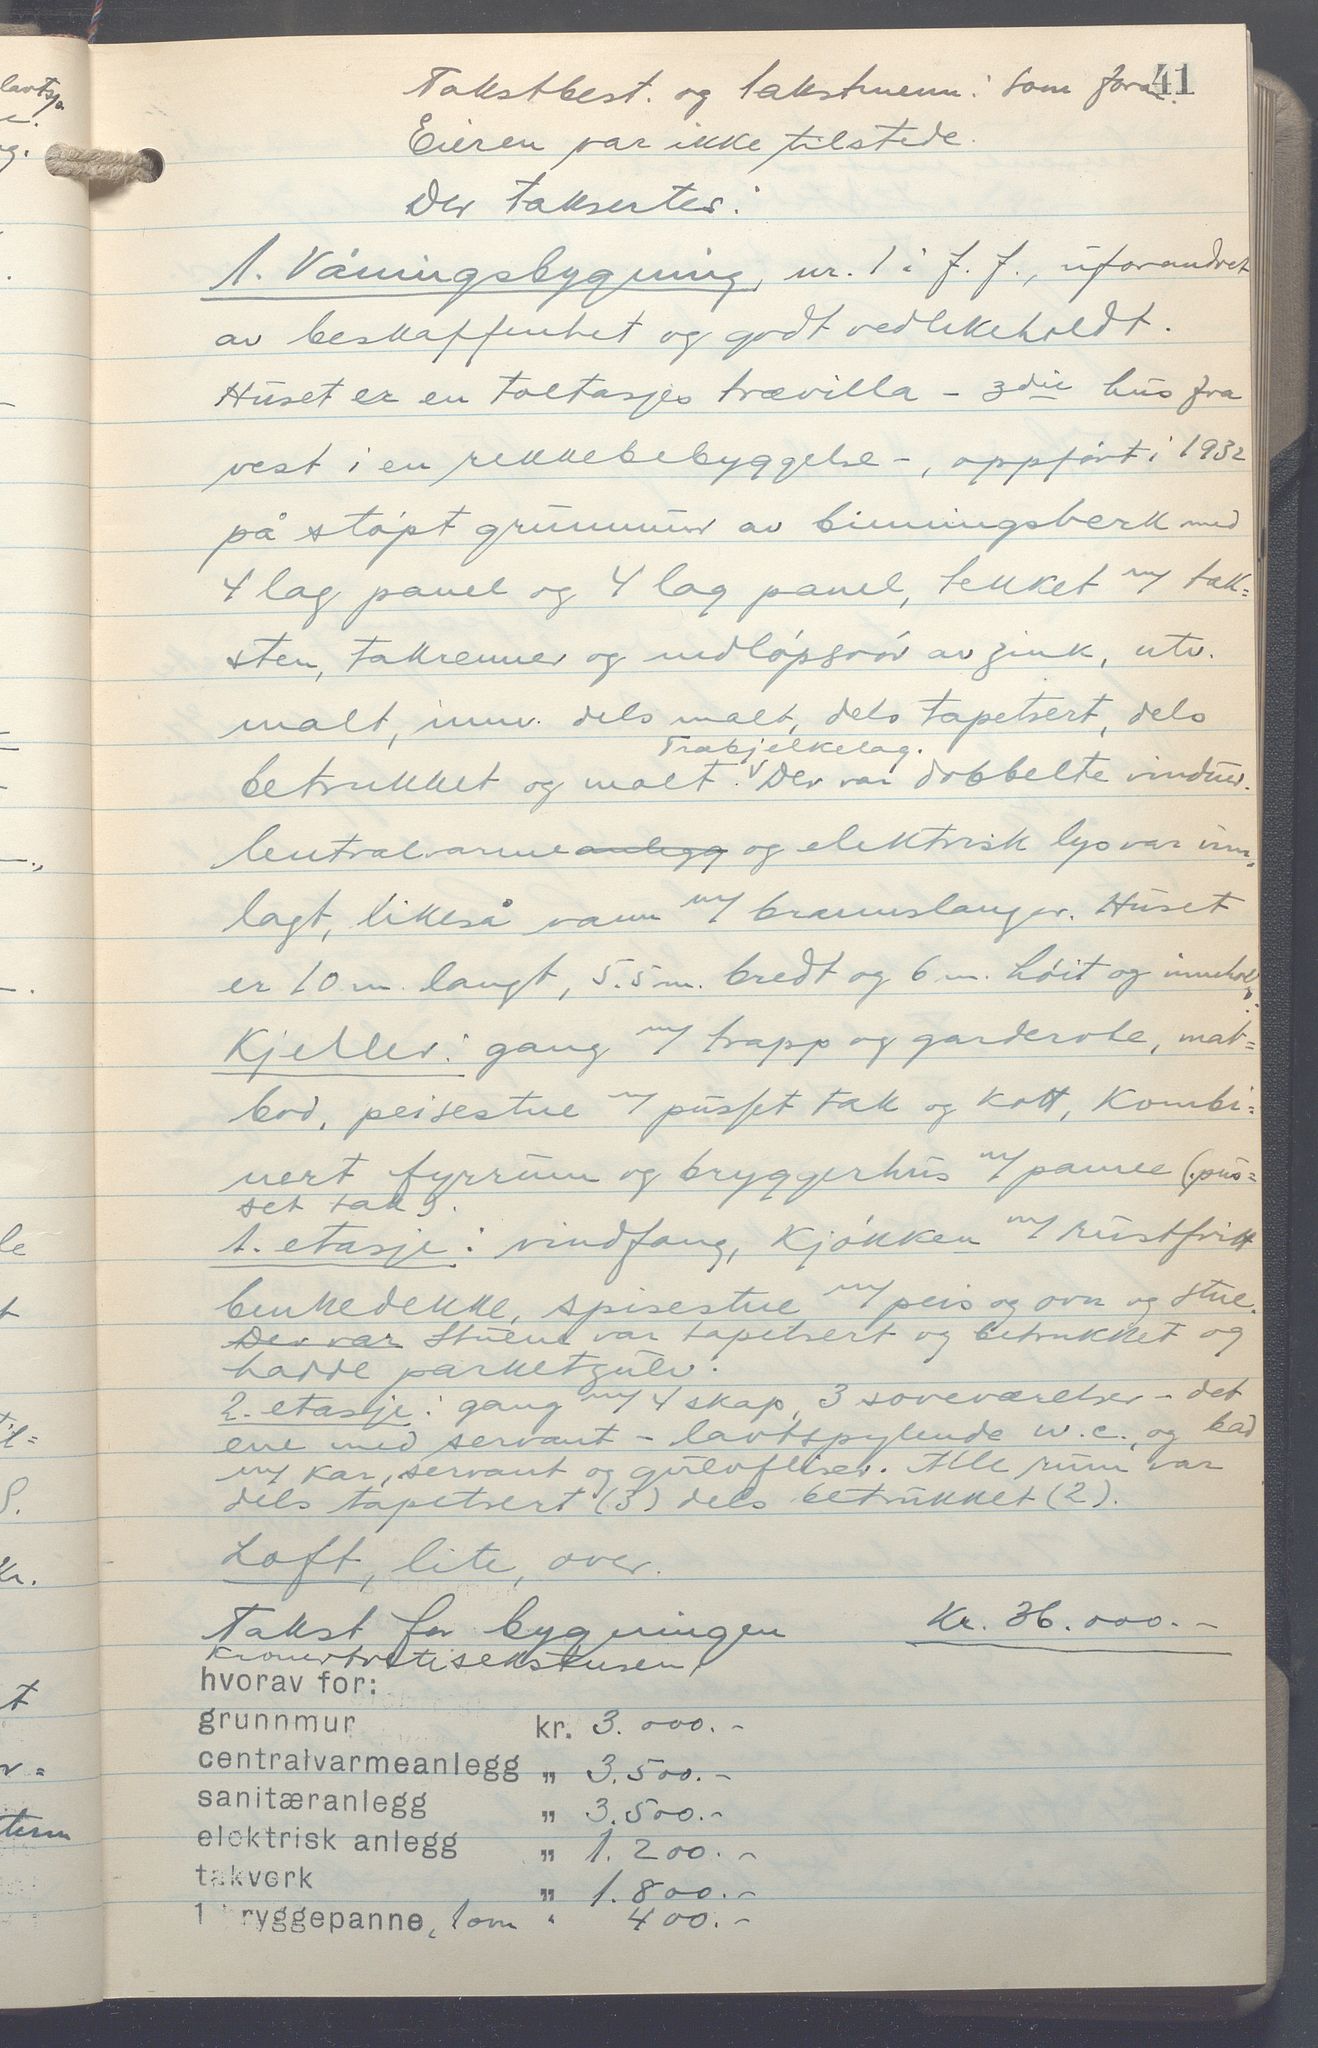 41
Takstbest. og takstmenn: som foran.
Eieren var ikke tilstede.
Der taksertes:
1. Våningsbygning, nr. 1 i f. f., uforandret
av beskaffenhet og godt vedlikeholdt.
Huset er en toetasjes trævilla - 3die hus fra
vest i en rekkebebyggelse -, oppført i 1932
på støpt grunnmur av binningsverk med
4 lag panel og 4 lag panel, tekket m/ tak=
sten, takrenner og nedløpsrør av zink, utv.
malt, innv. dels malt, dels tapetsert, dels
Træbjelkelag.
betrukket og malt. Der var dobbelte vinduer.
Centralvarmeanlegg og elektrisk lys var inn=
lagt, likeså vann m/ brannslanger. Huset
er 10 m. langt, 5.5 m. bredt og 6 m. høit og inneholder:
Kjeller: gang m/ trapp og garderobe, mat=
bod, peisestue m/ pusset tak og kott, kombi=
nert fyrrum og bryggerhus m/ panne (pus=
set tak).
1. etasje: vindfang, kjøkken m/ rustfritt
benkedekke, spisestue m/ peis og ovn og stue.
Der var Stuene var tapetsert og betrukket og
hadde parketgulv.
2. etasje: gang m/ 4 skap, 3 soveværelser - det
ene med servant - lavtspylende w.c., og bad
m/ kar, servant og gulvfliser. Alle rum var
dels tapetsert (3) dels betrukket (2).
Loft, lite, over.
Takst for bygningen Kr. 36.000.-
Kronertrettisekstusen
hvorav for:
grunnmur kr. 3.000.-
centralvarmeanlegg " 3.500.-
sanitæranlegg " 3.500.-
elektrisk anlegg " 1.200.-
takverk " 1.800.-
1 bryggepanne, 1 ovn " 400.-